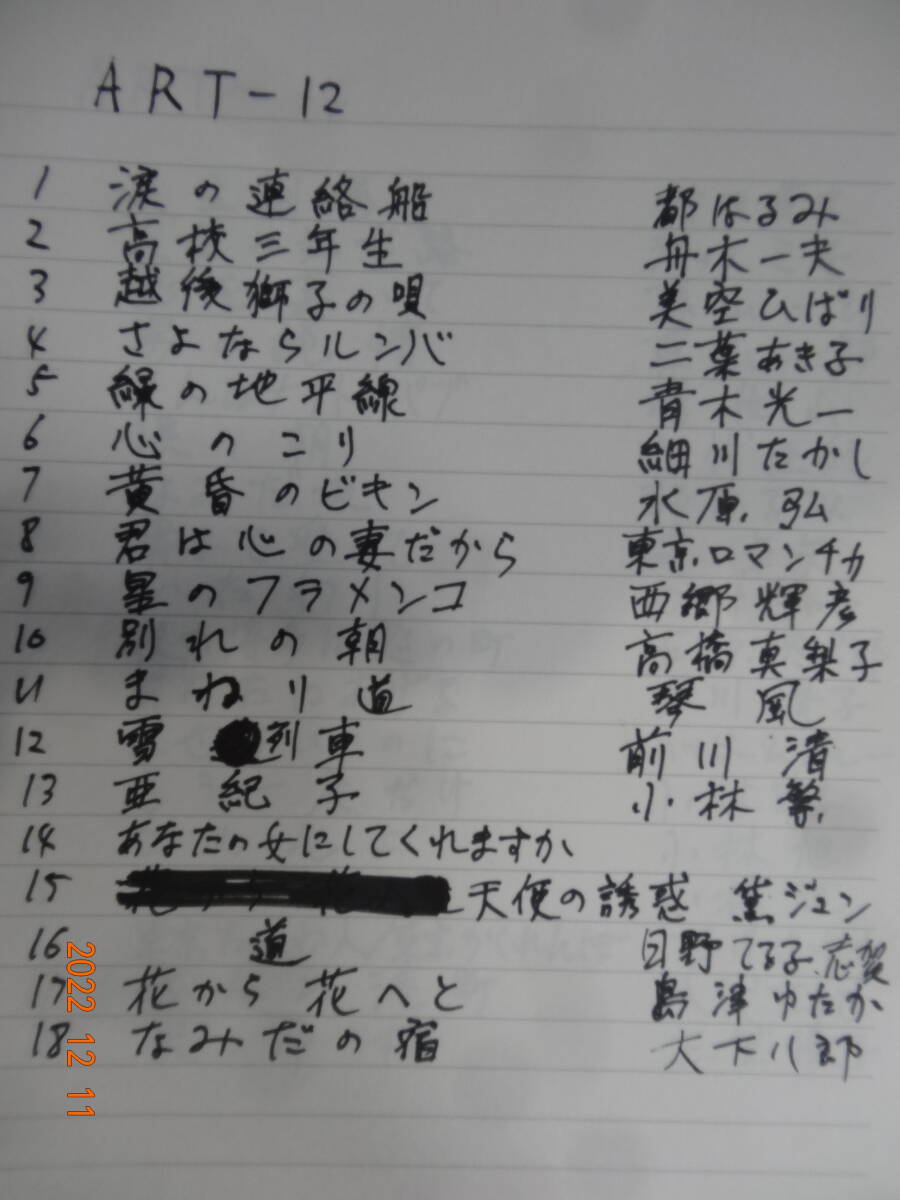 ART-12
1 涙の連絡船 都はるみ
2 高校三年生 舟木一夫
3 越後獅子の唄 美空ひばり
4 さよならルンバ 二葉あき子
5 緑の地平線 青木光一
6 心のこり 細川たかし
7 黄昏のビキン 水原弘
8 君は心の妻だから 東京ロマンチカ
9 星のフラメンコ 西郷輝彦
10 別れの朝 高橋真梨子
11 まわり道 琴風
12 雪列車 前川清
13 亜紀子 小林繁
14 あなたの女にしてくれますか
15 天使の誘惑 黛ジュン
16 道 日野てる子、志賀
17 花から花へと 島津ゆたか
18 なみだの宿 大下八郎
2022 12 11